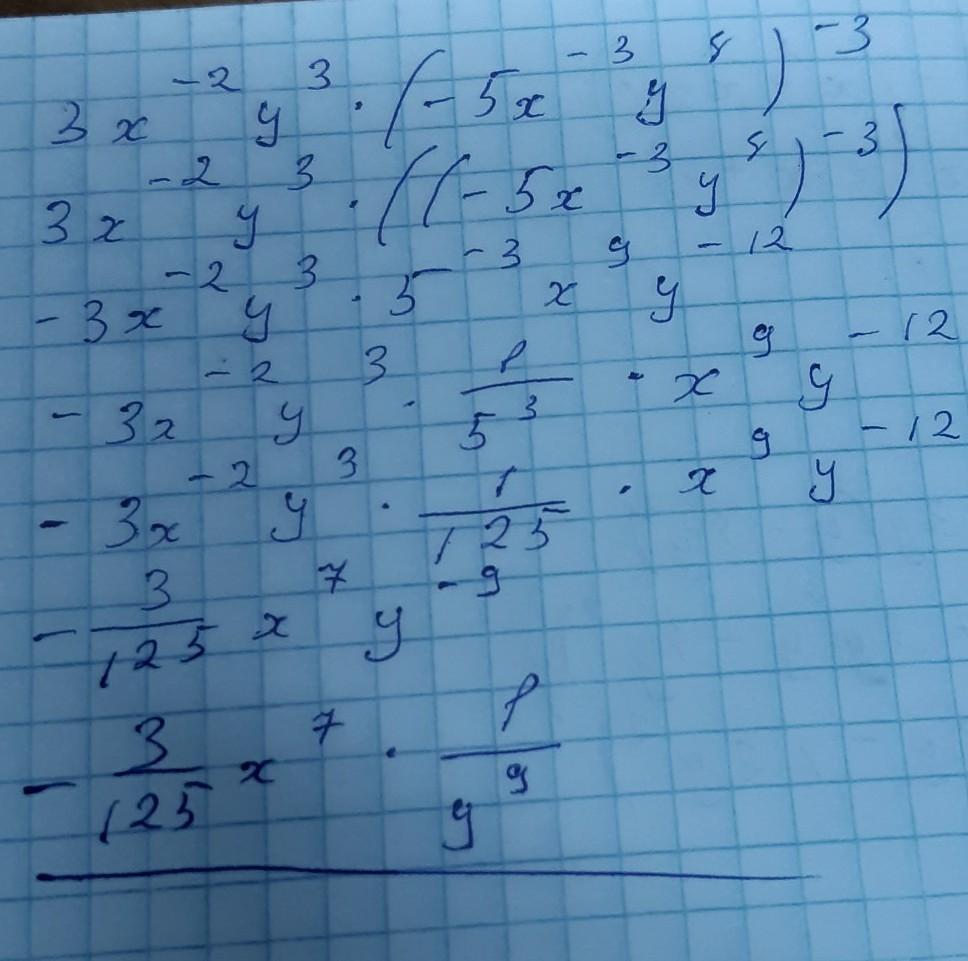 3x⁻² y³ · (-5x⁻³ y⁴)⁻³
3x⁻² y³ · ((-5x⁻³ y⁴)⁻³)
-3x⁻² y³ · 5⁻³ x⁹ y⁻¹²
-3x⁻² y³ · 1/5³ · x⁹ y⁻¹²
-3x⁻² y³ · 1/125 · x⁹ y⁻¹²
-3/125 x⁷ y⁻⁹
-3/125 x⁷ · 1/y⁹